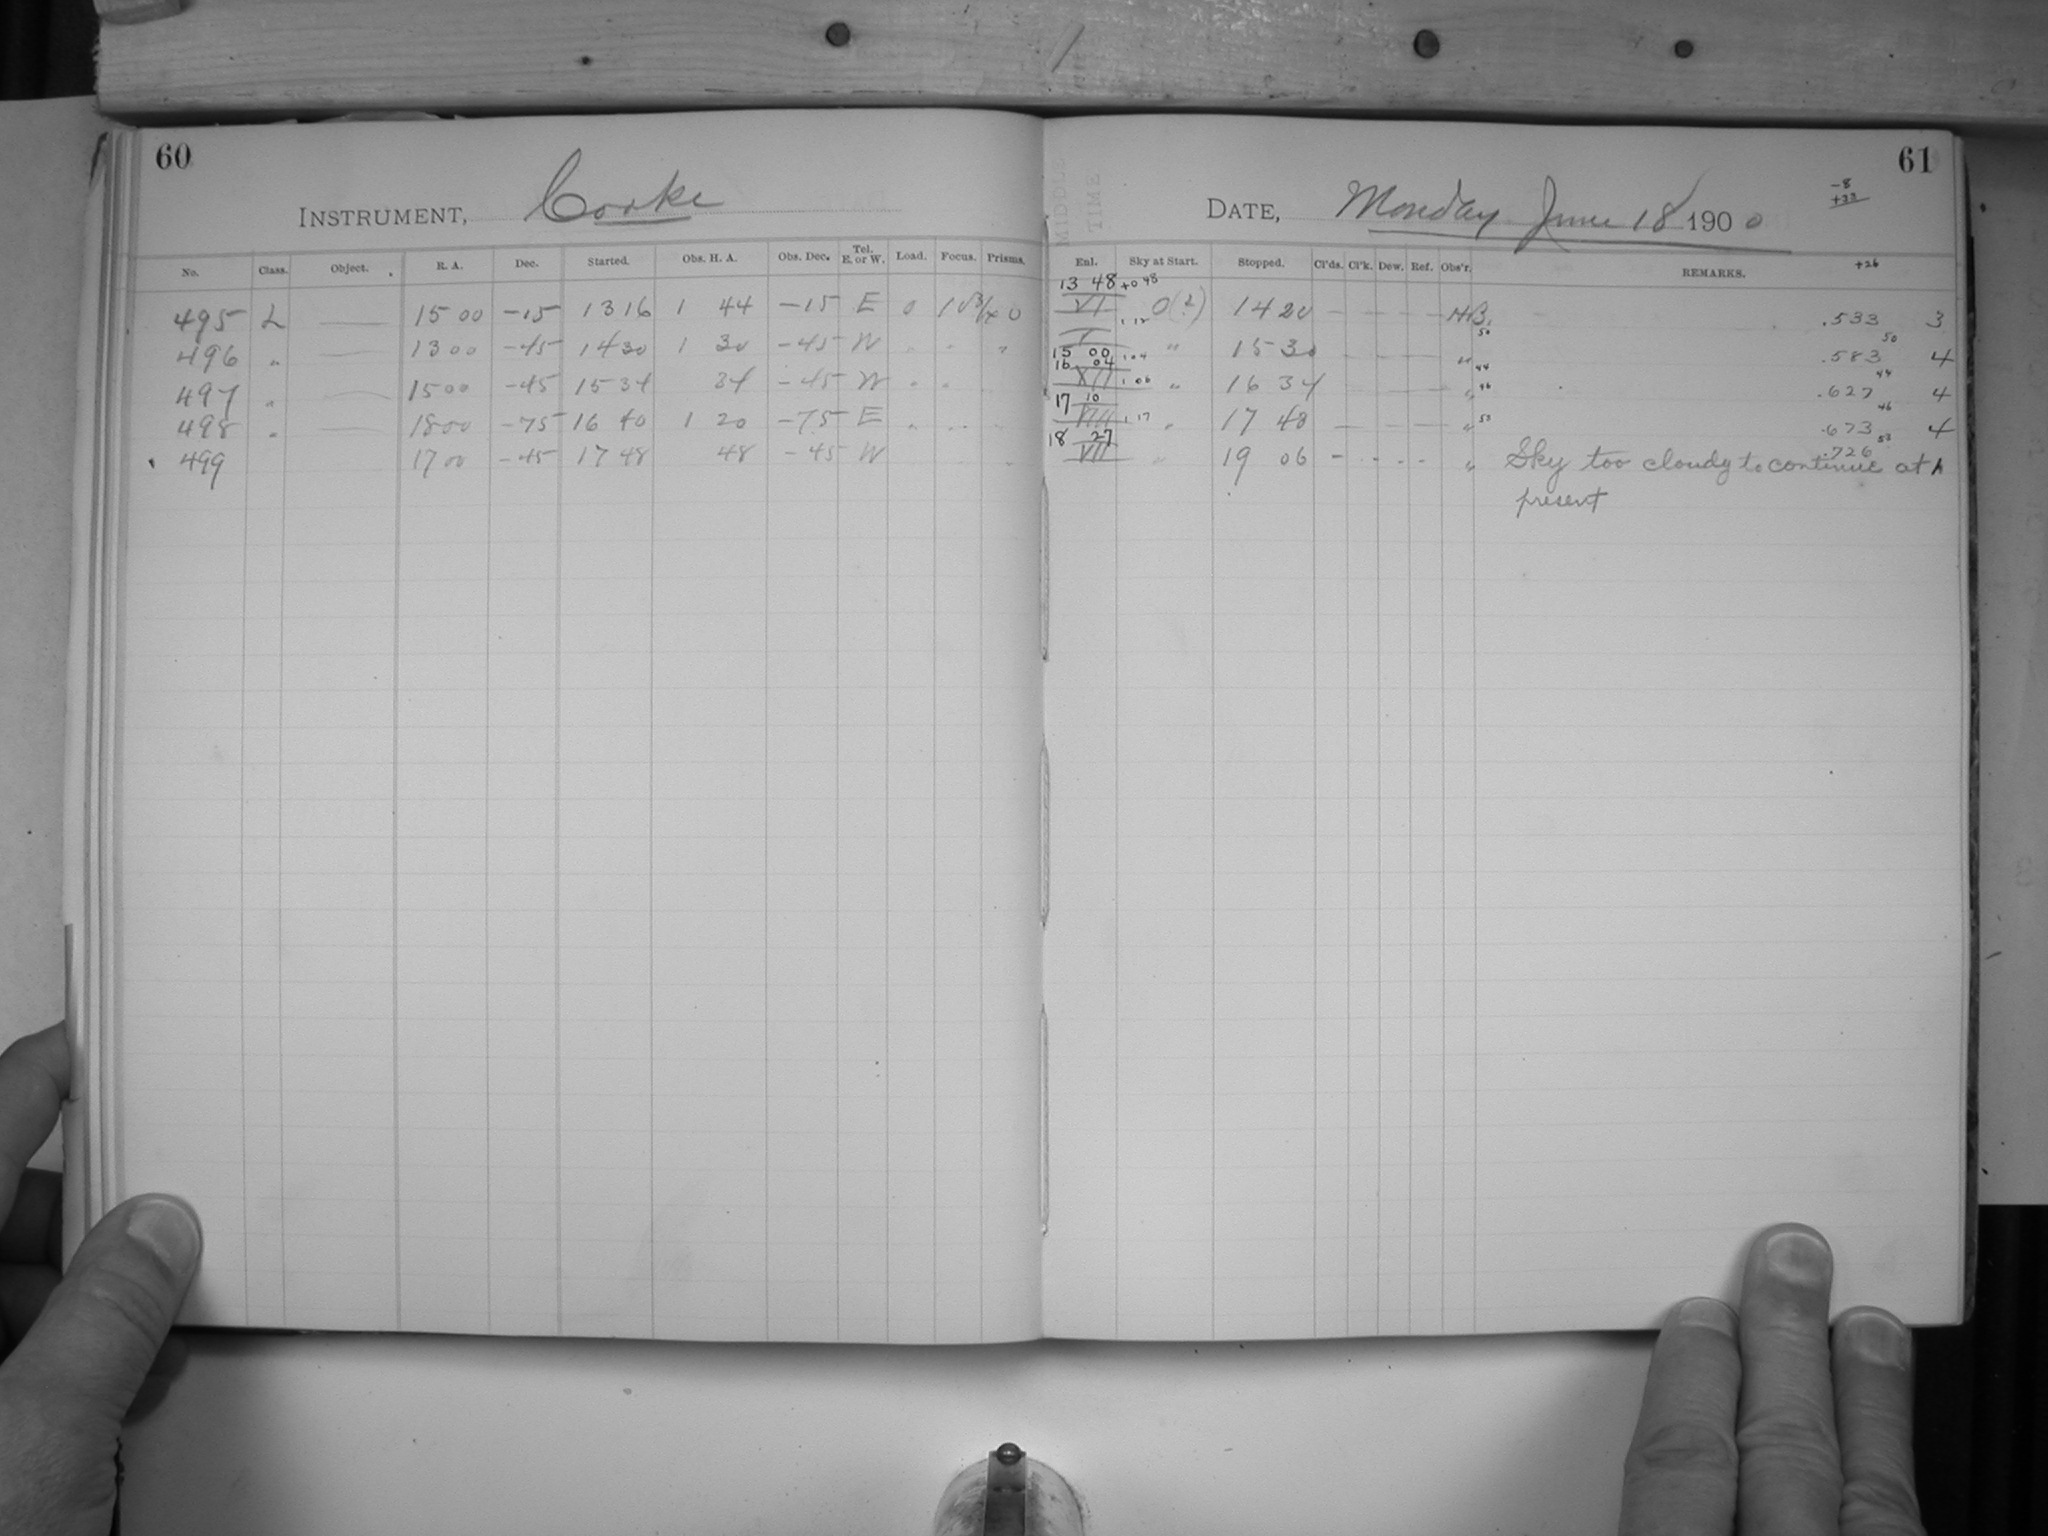 60
INSTRUMENT, Cooke
No. Class. Object. R. A. Dec. Started. Obs. H. A. Obs. Dec. Tel. E. or W. Load. Focus. Prisms.
495 L — 15 00 -15 13 16 1 44 -15 E 0 0
496 " — 13 00 -45 14 30 1 30 -45 W " " "
497 " — 15 00 -45 15 34 34 -45 W " "
498 " — 18 00 -75 16 40 1 20 -75 E " " "
499 17 00 -45 17 48 48 -45 W
61
DATE, Monday June 18 1900
-8
+33
+26
MIDDLE TIME
Enl. Sky at Start. Stopped. Cl'ds. Cl'k. Dew. Ref. Obs'r. REMARKS.
13 48 +0 48
VI 0(?) 14 20 — — — — HB. .533 3
1.12 50 50
I " 15 30 — — — — " .583 4
15 00 1.04 44 44
16 04
XII 1.06 " 16 34 — — — — " 46 .627 4
17 10 46
VIII 1.17 " 17 48 — — — — " 53 .673 4
18 27 53
VII " 19 06 - - - - " .726
Sky too cloudy to continue at
present